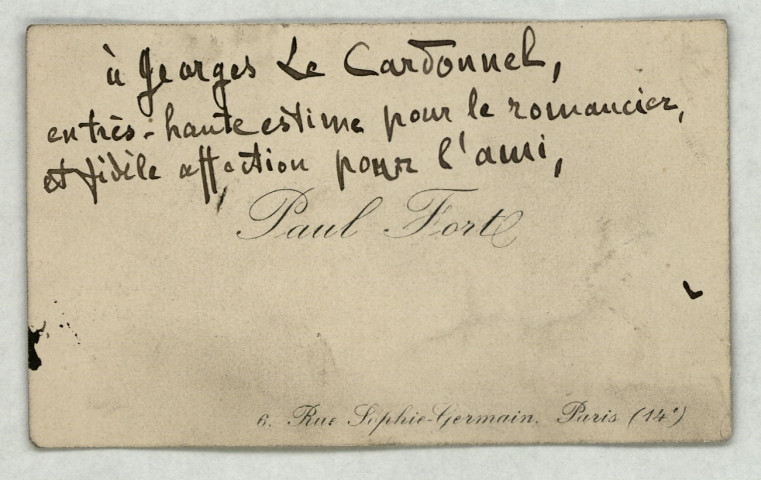 à Georges Le Cardonnel,
en très-haute estime pour le romancier,
et fidèle affection pour l'ami,
Paul Fort
6, Rue Sophie-Germain. Paris (14e)